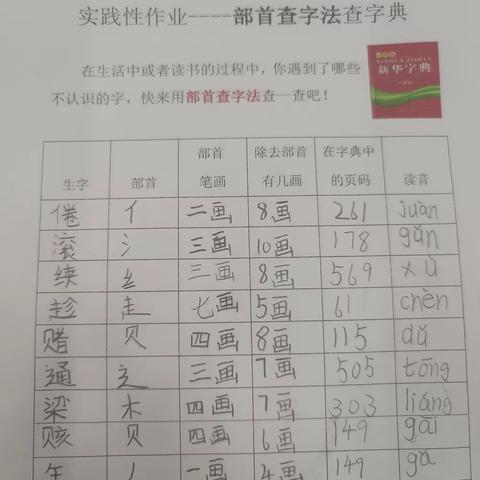 实践性作业----部首查字法查字典
在生活中或者读书的过程中，你遇到了哪些
不认识的字，快来用部首查字法查一查吧！
XINHUA ZIDIAN
新华字典
生字 部首 部首笔画 除去部首有几画 在字典中的页码 读音
倦 亻 二画 8画 261 juàn
滚 氵 三画 10画 178 gǔn
续 纟 三画 8画 569 xù
趁 走 七画 5画 61 chèn
赌 贝 四画 8画 115 dǔ
通 辶 三画 7画 505 tōng
梁 木 四画 7画 303 liáng
赅 贝 四画 6画 149 gāi
丿 一画 4画 149 gǎ